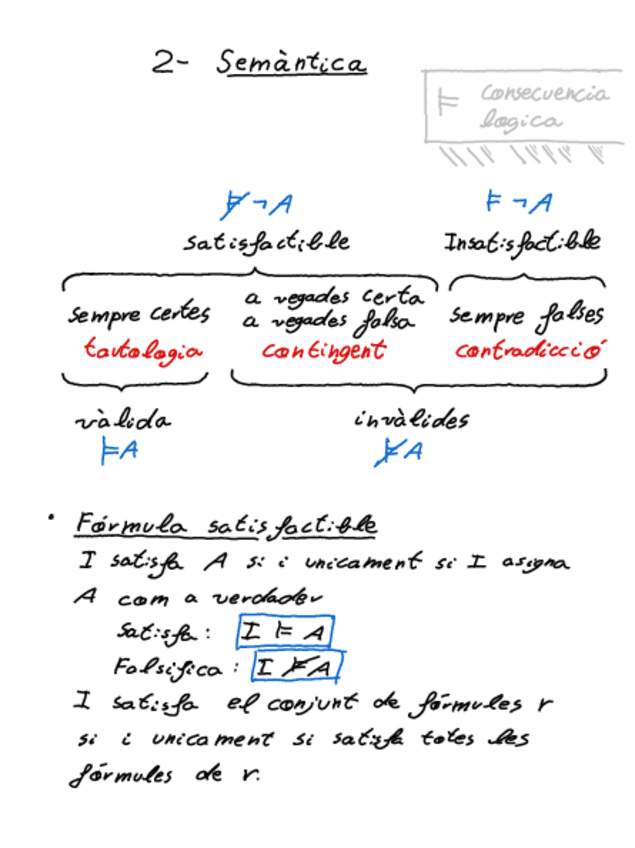 2- Semàntica
⊨ Consecuencia
logica
⊭ ¬A
⊨ ¬A
satisfactible
Insatisfactible
sempre certes
a vegades certa
a vegades falsa
sempre falses
tautologia
contingent
contradicció
vàlida
invàlides
⊨A
⊭A
• Fórmula satisfactible
I satisfa A si i unicament si I asigna
A com a verdader
Satisfa: I ⊨ A
Falsifica: I ⊭ A
I satisfa el conjunt de fórmules r
si i unicament si satisfa totes les
fórmules de r.